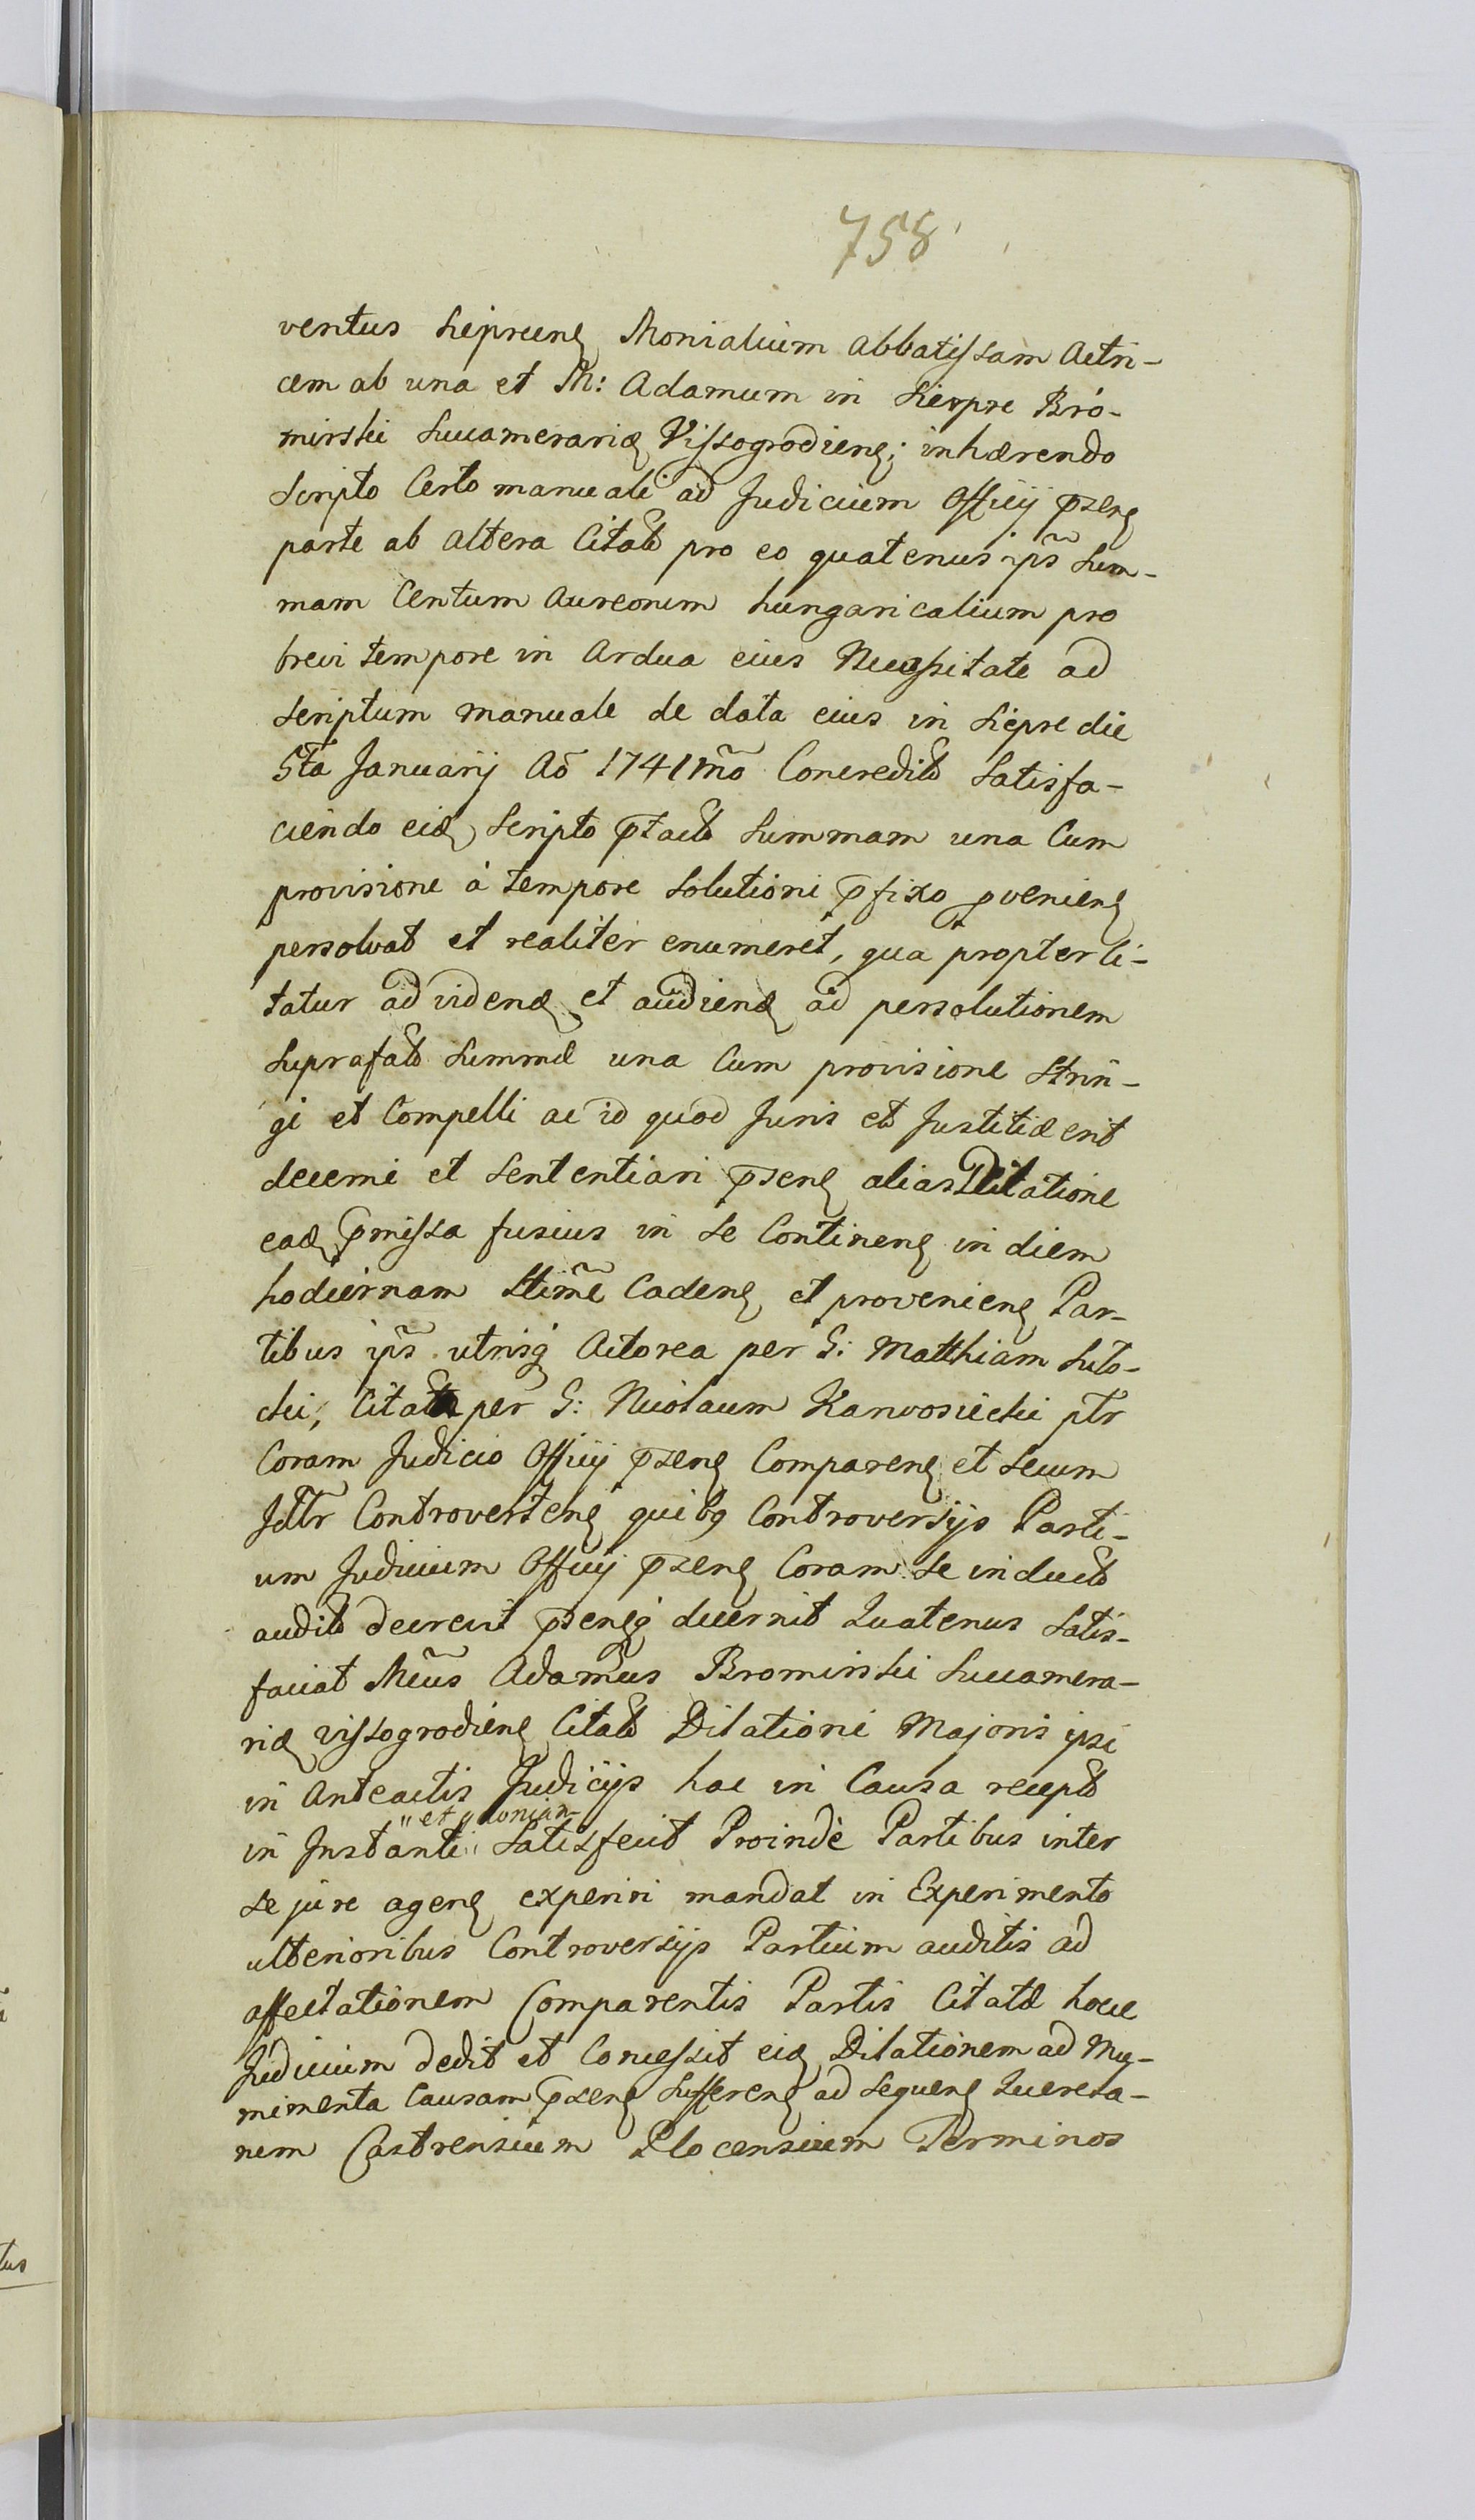 758
ventus Siepreens Monialium Abbatissam Actri-
cem ab una et M: Adamum in Sierpre Bro-
mirski Succamerarid Vissogrodiens; inhærendo
Scripto Certo manuali ad Judicium Officij pzens
parte ab altera Citatt pro eo quatenus ips̃ Sum-
mam Centum Aureorum hungaricalium pro
brevi tempore in Ardua eius Necessitate ad
scriptum manuale de data eius in Siepre die
5ta Januarij Aõ 1741mõ Concreditt Satisfa-
ciendo eid Scripto p̄tactt Summam una Cum
provisione à tempore Solutioni p̄fixo pveniens
persolvat et realiter enumeret, qua propter Ci-
tatur ad vidend et audiend ad persolutionem
Suprafatt Summæ una Cum provisione Strin-
gi et Compelli ac id quod Juris et Justitiæ erit
decerni et Sententiari p̄sens alias Dilatione
ead p̄missa fusius in se Continens in diem
hodiernam Cadens et proveniens Par-
tibus ips̃ utrisq Actorea per G: Matthiam
Citata per G: Nicolaum Karwosiecki ptr
Coram Judicio Officij p̄zens Comparens et Secum
Jdtr Controvertens quibq Controversijs Parti-
um Judicium Officij p̄zens Coram se inductt
auditt decrevit p̄sensq decernit Quatenus Satis-
faciat Mcũs Adamus Bromirski Succamera-
rid vissogrodiens Citatt Dilationi Majoris ipsi
in Anteactis Judicijs hac in Causa receptt
"et quonian-
in Instanti" Satisfecit Proindè Partibus inter
se jure agens experiri mandat in Experimento
ulterioribus Controversijs Partium auditis ad
affectationem Comparentis Partis Citatæ hocce
Judicium dedit et Concessit eid Dilationem ad Mu-
nimenta Causam p̄zens Sufferens ad sequens Querela-
rum Castrensium Plocensium Terminos